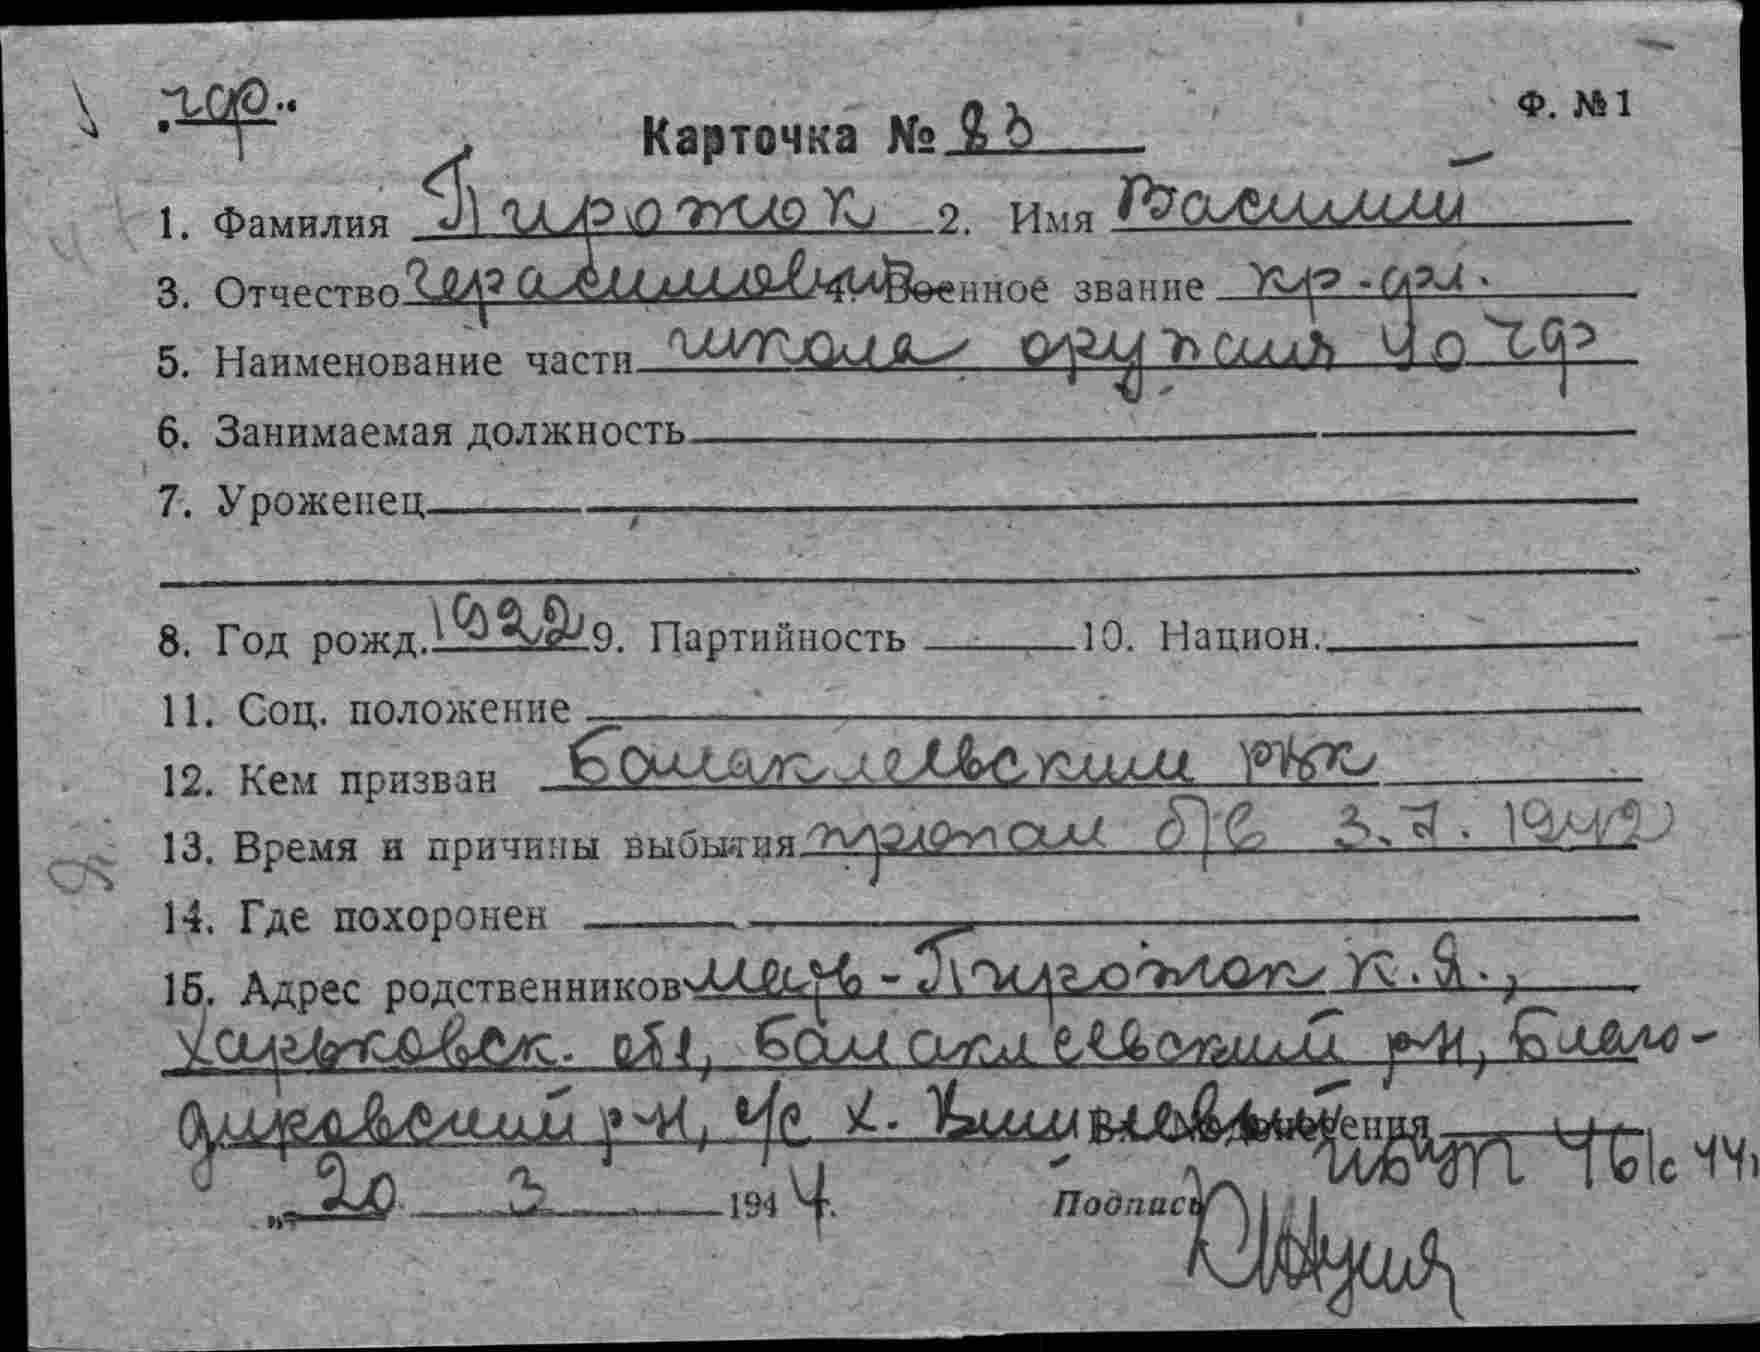 чф.
Ф. №1
Карточка № 83
1. Фамилия Пирожок 2. Имя Василий
3. Отчество Герасимович 4. Военное звание кр-фл.
5. Наименование части школа оружия УО ЧФ
6. Занимаемая должность
7. Уроженец
8. Год рожд. 1922 9. Партийность 10. Национ.
11. Соц. положение
12. Кем призван Балаклеевским рвк
13. Время и причины выбытия пропал б/в 3.7.1942
14. Где похоронен
15. Адрес родственников мать - Пирожок К.Я.,
Харьковск. обл, Балаклеевский р-н, Благо-
диковский р-н, с/с х.
„ 20 3 1944.
Подпись